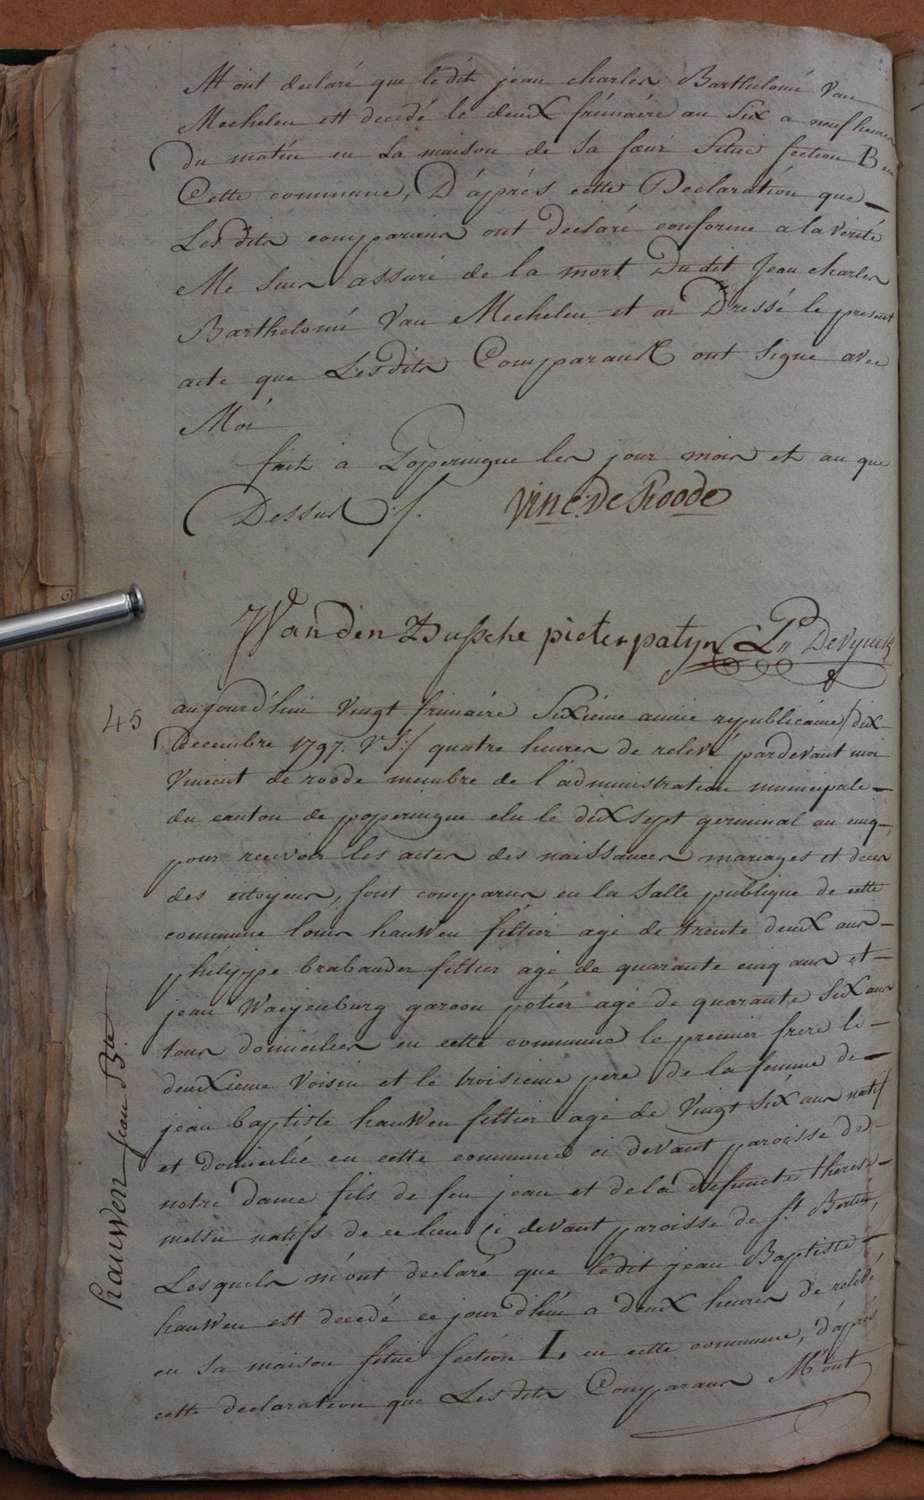 M ont declaré que ledit jean charles Barthelomé Van
Mechelen est decedé le deux frimaire an Six a neuf heures
du matin en La maison de Sa sœur Situé section B en
Cette commune, D'après cette Declaration que
Lesdits comparans ont Declaré conforme a la verité
Me Suis assuré de la mort Dudit Jean charles
Barthelomé Van Mechelen et ai Dressé le present
acte que Lesdits Comparans ont Signe avec
Moi
fait à Poperingue les jour mois et an que
Dessus ./.
Vinc: De Roode
Van den Bussche pieter patyn P:" Devynck
45
aujourd'hui Vingt frimaire Sixieme année republicaine /dix
Decembre 1797. V S:/ quatre heures de relevé pardevant moi
Vincent de roode membre de l'administration municipale
du canton de poperingue elu le dix sept germinal an cinq
pour recevoir les actes des naissances mariages et deces
des citoyens, sont comparus en la Salle publique de cette
commune louis hauwen fillier agé de trente deux ans
philippe brabander fillier agé de quarante cinq ans et
jean Waeyenburg garcon potier agé de quarante Six ans
tous domiciliés en cette commune le premier frere le
deuxieme Voisin et le troisieme pere de la femme de
jean baptiste hauwen fillier agé de Vingt Six ans natif
et domicilié en cette commune ci devant paroisse de
notre Dame fils de feu jean et de la defuncte therese
natifs de ce lieu ci devant paroisse de St Bertin,
Lesquels m'ont declaré que ledit jean Baptiste
hauwen est decedé ce jour d'hui a Deux heures de relevé
en sa maison situé section L, en cette commune, d'après
cette declaration que Lesdits Comparans M'ont
hauwen jean Bte